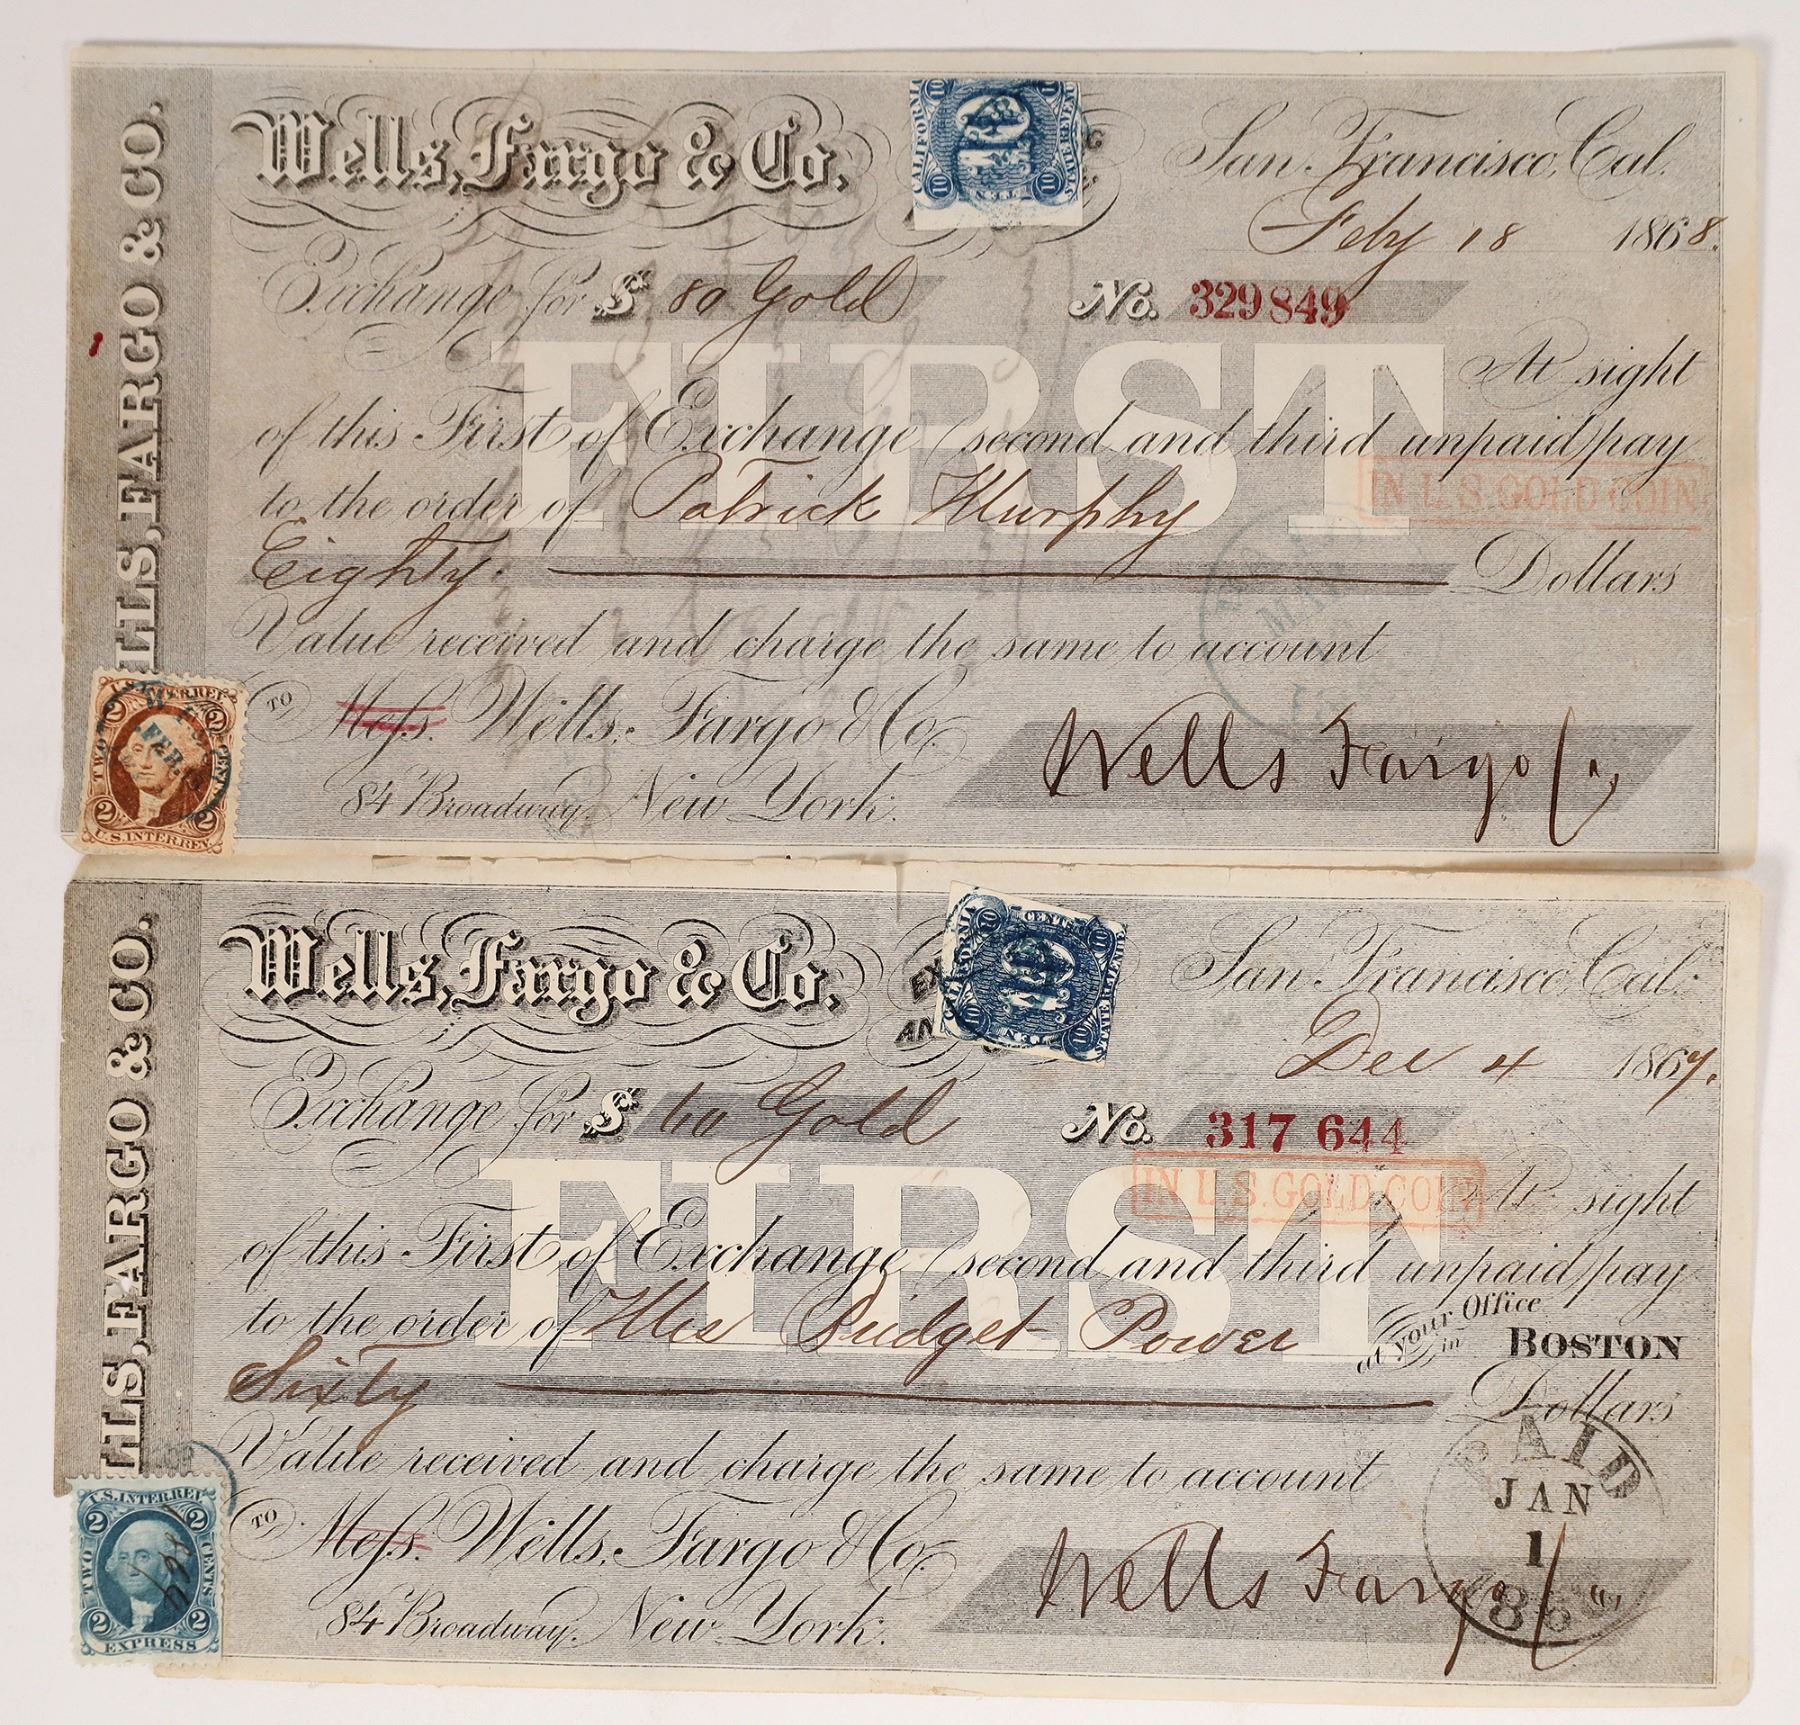 WELLS, FARGO & CO.
Wells, Fargo & Co.
CALIFORNIA
10
10
10
TEN
San Francisco, Cal.
Feby 18 1868.
Exchange for $ 80 Gold
No. 329849
FIRST
At sight
of this First of Exchange (second and third unpaid) pay
to the order of Patrick Murphy
IN U.S. GOLD COIN
Eighty Dollars
Value received and charge the same to account
TO Mess. Wells, Fargo & Co.
Wells Fargo Co
84 Broadway, New York.
U.S. INTER. REV.
2 2
TWO CENTS
FEB
2 2
U.S. INTER. REV.
LLS, FARGO & CO.
Wells, Fargo & Co.
EX
AN
CALIFORNIA
10 CENTS 10
10 TEN 10
San Francisco, Cal.
Dec 4 1867.
Exchange for $ 60 Gold
No. 317 644
FIRST
IN U.S. GOLD COIN
At sight
of this First of Exchange (second and third unpaid) pay
to the order of Mrs Bridget Power
at your Office in BOSTON
Sixty Dollars
Value received and charge the same to account
PAID
JAN
1
TO Mess. Wells, Fargo & Co.
Wells Fargo Co
84 Broadway, New York.
U.S. INTER. REV.
2 2
TWO CENTS
2 2
EXPRESS